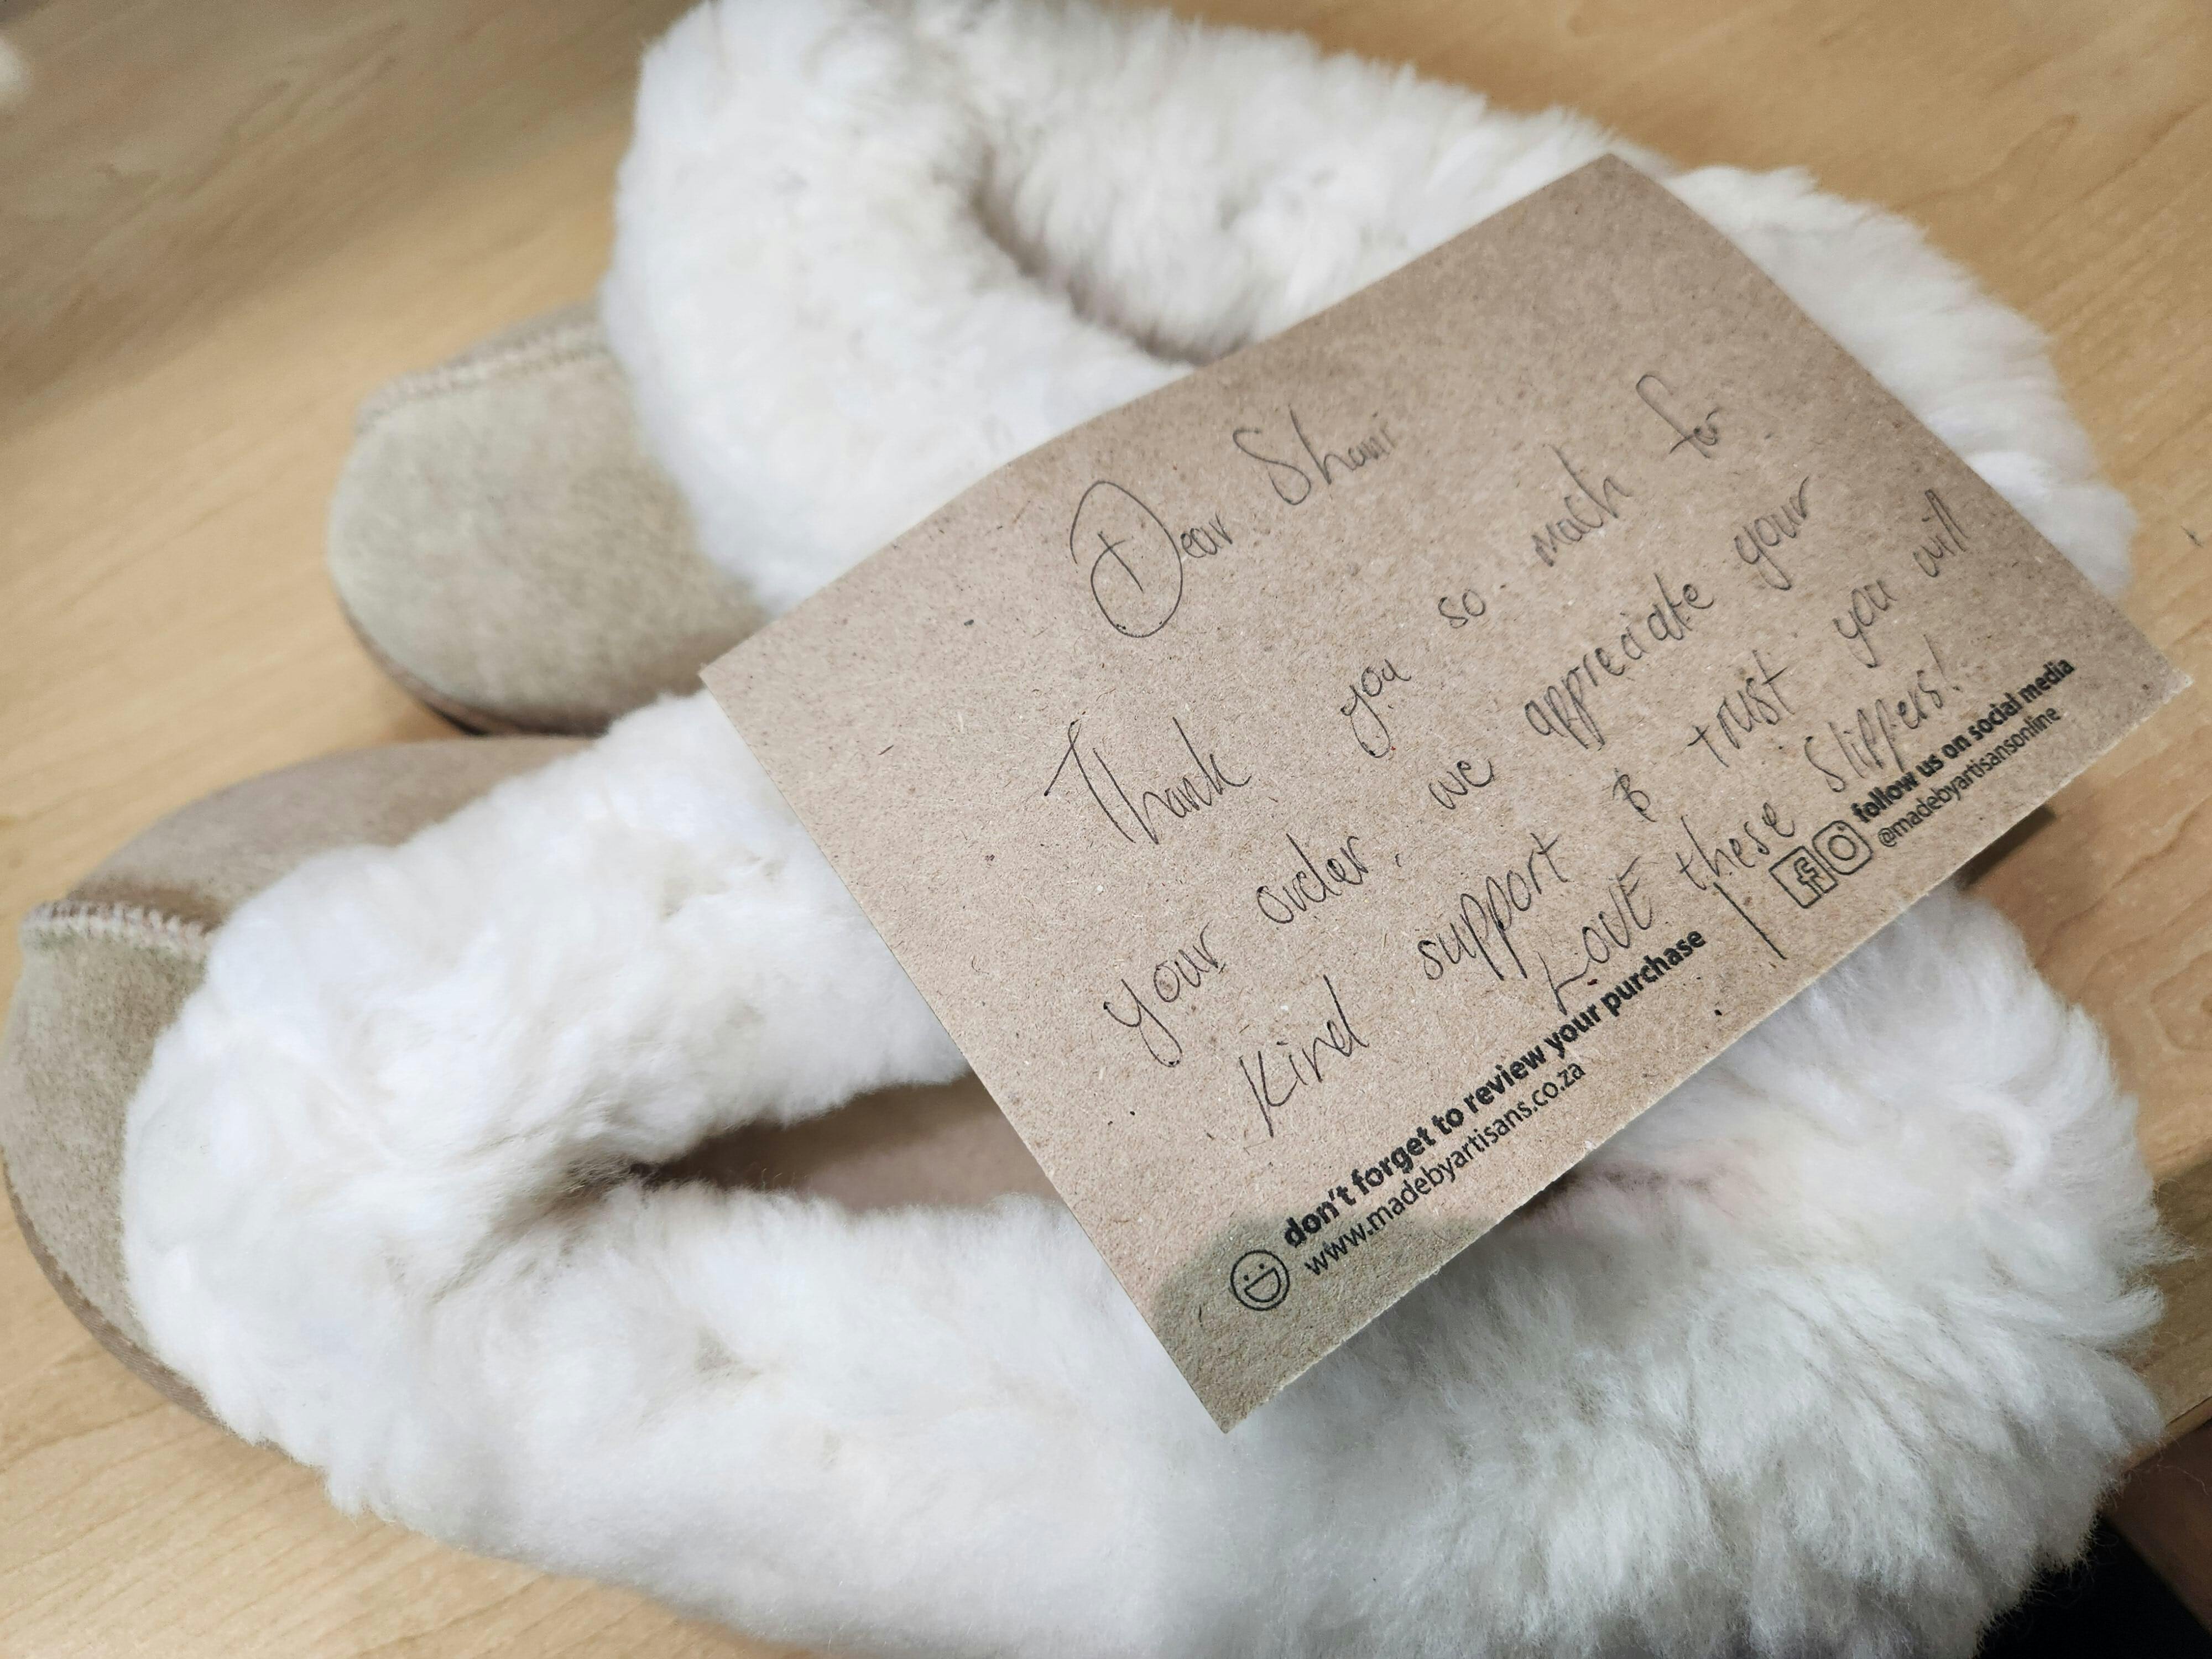 Dear
Thank you so much for
your order, we appreciate your
kind support & trust you will
LOVE these slippers!
don't forget to review your purchase
www.madebyartisans.co.za
follow us on social media
@madebyartisansonline